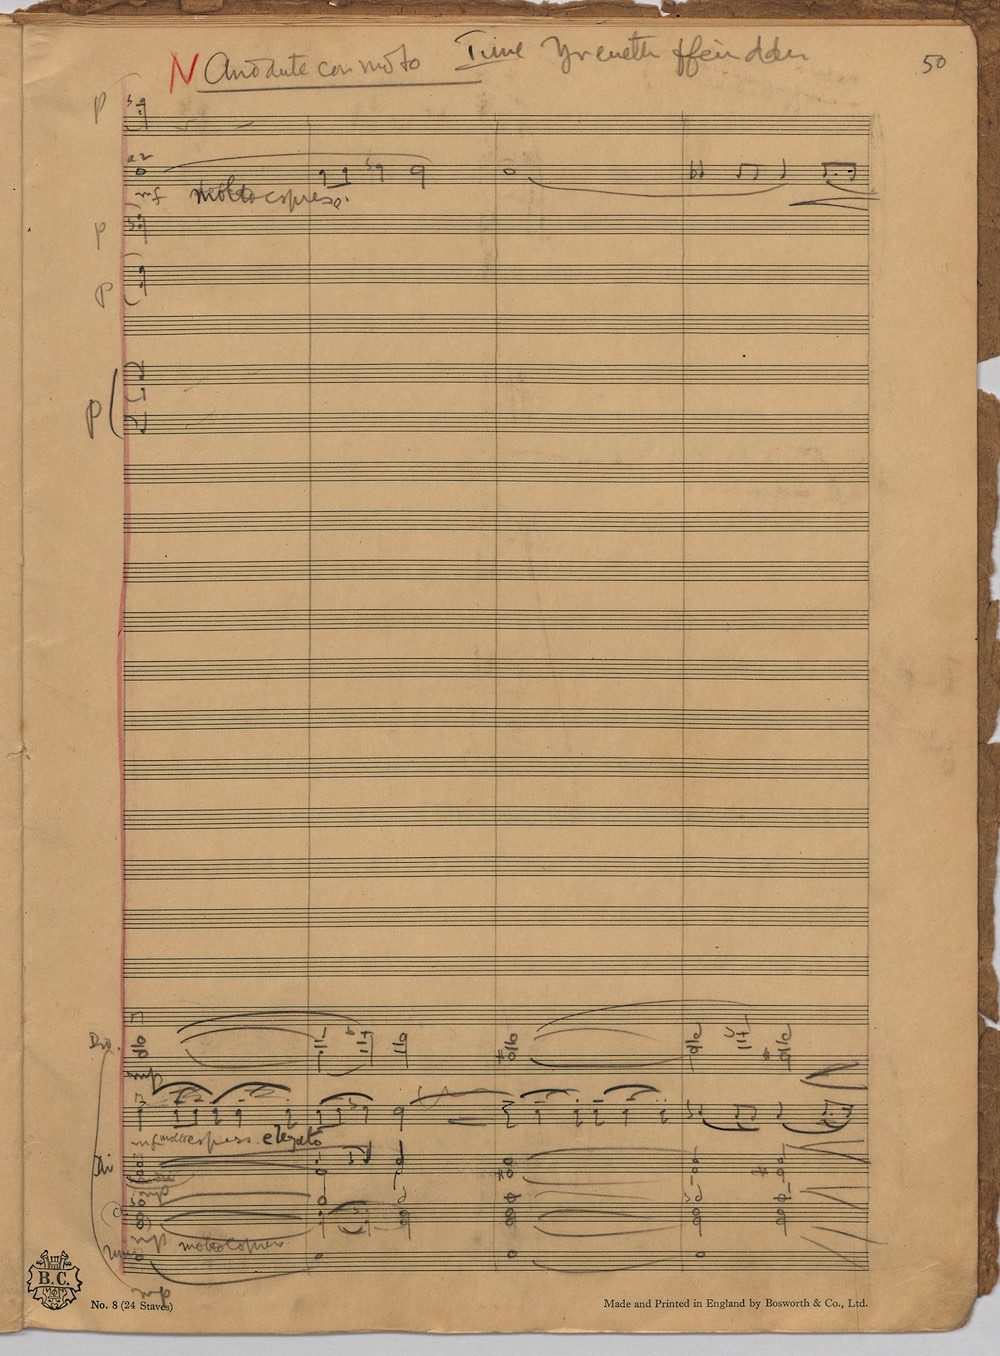 N Andante con moto Tune Yr eneth ffein ddu 50
p
a2
mf molto espress.
p
p
p
Div.
mp
mf molto espress. e legato
Div
mp
mp molto espress
mp
B.C.
No. 8 (24 Staves) Made and Printed in England by Bosworth & Co., Ltd.